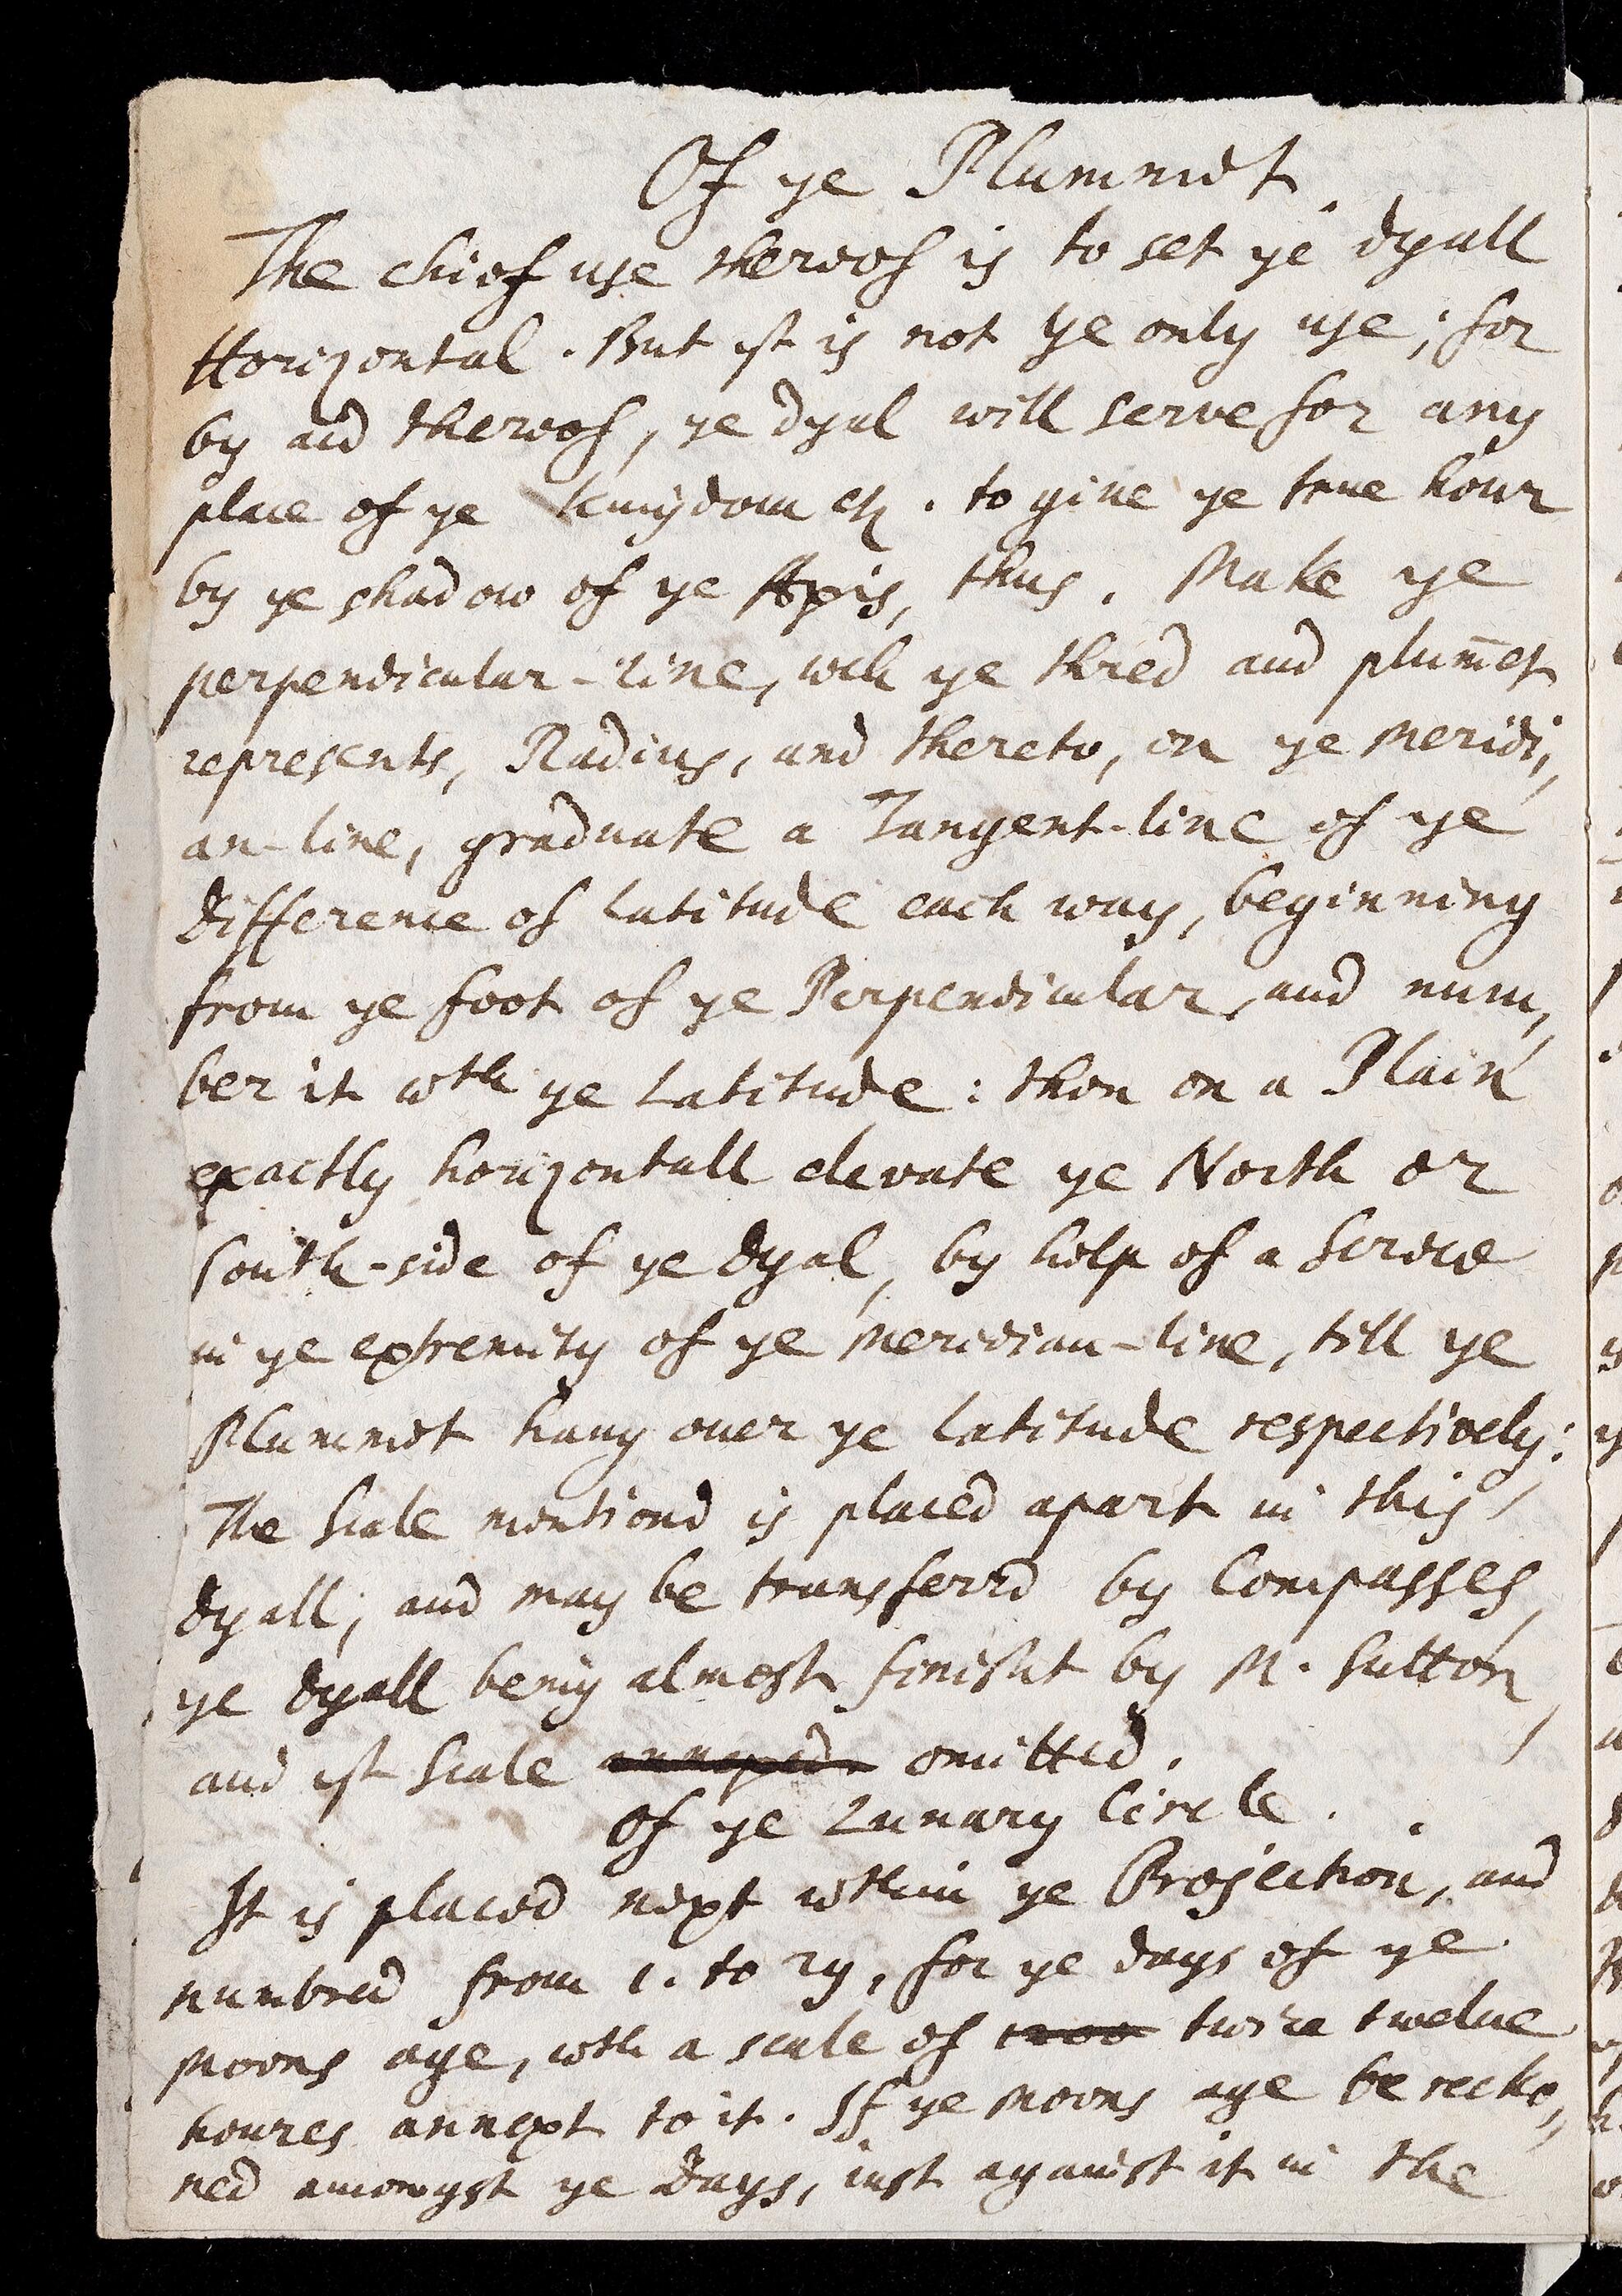 Of ye Plummet
The chief use thereof is to set ye dyall
Horizontal. But yt is not ye only use; for
by aid thereof, ye dyal will serve for any
place of ye Kingdom etc. to give ye true hour
by ye shadow of ye Axis, thus. Make ye
perpendicular-line, wch ye thred and plum̄et
represents, Radius, and thereto, on ye meridi,
an-line, graduate a Tangent-line of ye
difference of Latitude each way, beginning
from ye foot of ye Perpendicular, and num,
ber it wth ye Latitude: then on a Plain
exactly horizontall elevate ye North or
South-side of ye dyal, by help of a Screw
in ye extremity of ye meridian-line, till ye
Plummet hang over ye Latitude respectively:
The Scale mentiond is placed apart in this
dyall; and may be transferrd by Compasses,
ye dyall being almost finisht by M. Sutton,
and yt Scale annexed omitted.
Of ye Lunary Circle.
It is placed next wthin ye Projection, and
numbred from 1. to 29, for ye days of ye
moons age, wth a scale of twoo twice twelve
houres annext to it. If ye moons age be recko,
ned amongst ye days, just against it in the